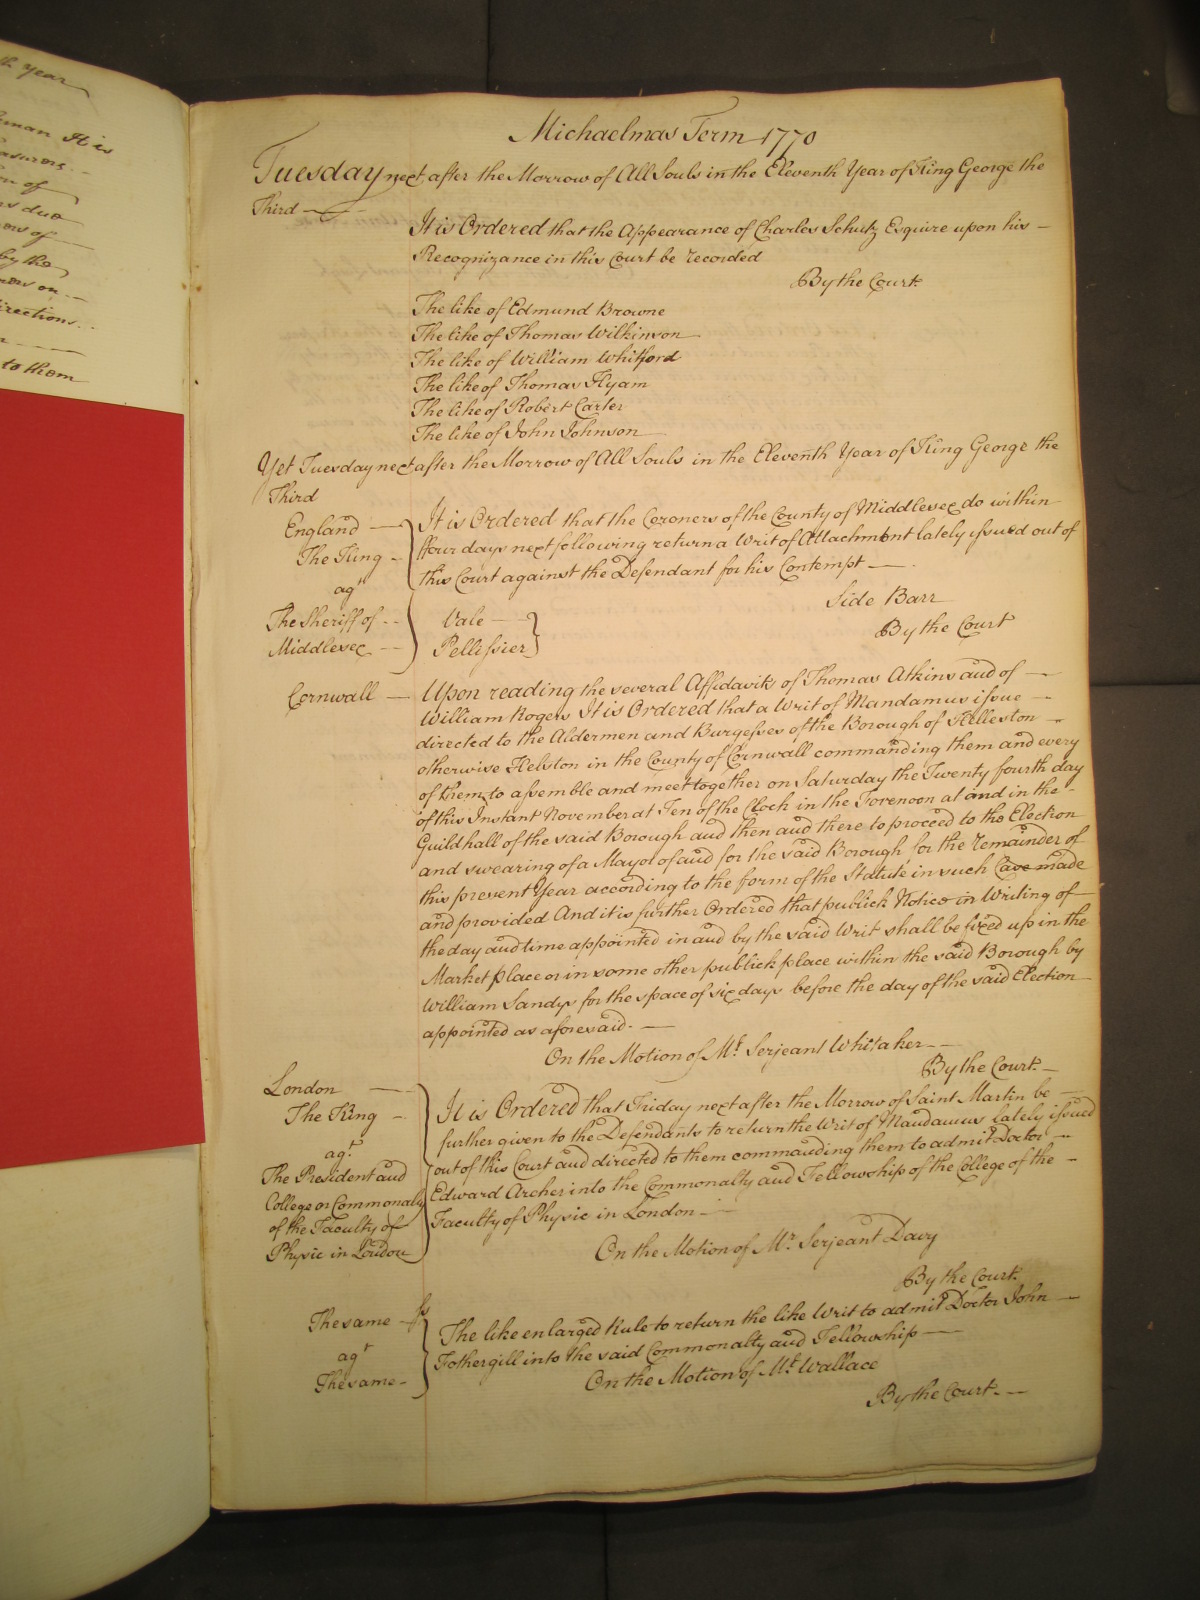 th year
man It is
asurers
on of
es due
ors of
by the
ners on
irections
to them
Michaelmas Term 1770
Tuesday next after the Morrow of All Souls in the Eleventh Year of King George the
Third
It is Ordered that the Appearance of Charles Schutz Esquire upon his
Recognizance in this Court be recorded
By the Court
The like of Edmund Browne
The like of Thomas Wilkinson
The like of William Whitford
The like of Thomas Hyam
The like of Robert Carter
The like of John Johnson
Yet Tuesday next after the Morrow of All Souls in the Eleventh Year of King George the
Third
England
The King
agt
The Sheriff of
Middlesex
It is Ordered that the Coroners of the County of Middlesex do within
ffour days next following return a Writ of Attachment lately issued out of
this Court against the Defendant for his Contempt
Side Barr
Vale
Pellissier
By the Court
Cornwall
Upon reading the several Affidavits of Thomas Atkins and of
William Rogers It is Ordered that a Writ of Mandamus issue
directed to the Aldermen and Burgesses of the Borough of Helleston
otherwise Helston in the County of Cornwall commanding them and every
of them to assemble and meet together on Saturday the Twenty fourth day
of this Instant November at Ten of the Clock in the Forenoon at and in the
Guildhall of the said Borough and then and there to proceed to the Election
and swearing of a Mayor of and for the said Borough for the remainder of
this present Year according to the form of the Statute in such Case made
and provided And it is further Ordered that publick Notice in Writing of
the day and time appointed in and by the said Writ shall be fixed up in the
Market place or in some other publick place within the said Borough by
William Sandys for the space of six days before the day of the said Election
appointed as aforesaid.
On the Motion of Mr. Serjeant Whitaker
By the Court.
London
The King
agt
The President and
College or Commonalty
of the Faculty of
Physic in London
It is Ordered that Friday next after the Morrow of Saint Martin be
further given to the Defendants to return the Writ of Mandamus lately issued
out of this Court and directed to them commanding them to admit Doctor
Edward Archer into the Commonalty and Fellowship of the College of the
Faculty of Physic in London
On the Motion of Mr. Serjeant Davy
By the Court.
The same ss
agt
The same
The like enlarged Rule to return the like Writ to admit Doctor John
Fothergill into the said Commonalty and Fellowship
On the Motion of Mr. Wallace
By the Court.